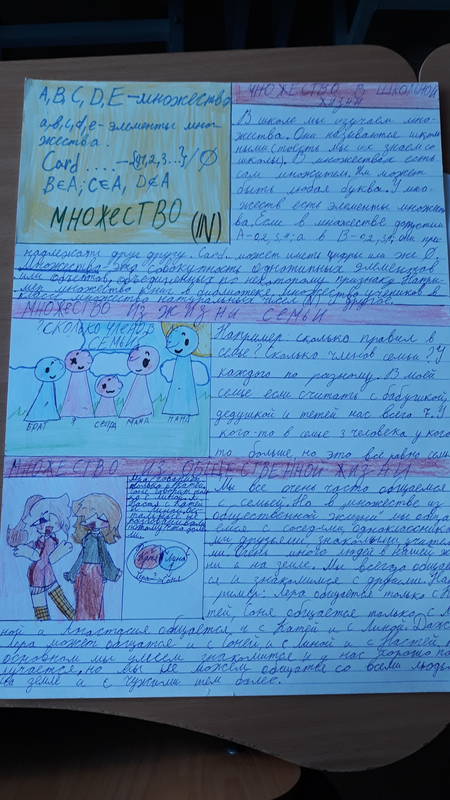 A, B, C, D, E - множества
a, b, c, d, e - элементы мно-
жества.
Card .... - {1, 2, 3...} / Ø
B∈A; C∈A, D∉A
МНОЖЕСТВО (IN)
МНОЖЕСТВО В ШКОЛЬНОЙ
ЖИЗНИ
В школе мы изучаем мно-
жества. Они называются школь-
ными (то есть мы их знаем со
школы). В множествах есть
сам множители. Им может
быть любая буква. У мно-
жеств есть элементы множест-
ва. Если в множестве допустим
A - а в B - они при-
надлежат друг другу. Card... может иметь цифры или же Ø.
Множества - это совокупность однотипных элементов
или объектов, объединенных по некоторому признаку. Напри-
мер множества книг в библиотеке, множество учеников в
классе, множество натуральных чисел и другое.
МНОЖЕСТВО ИЗ ЖИЗНИ СЕМЬИ
СКОЛЬКО ЧЛЕНОВ
СЕМЬИ
БРАТ Я СЕСТРА МАМА ПАПА
Например: сколько правил в
себье? Сколько членов семьи? У
каждого по разному. В моей
семье если считать с бабушкой,
дедушкой и тетей нас всего 7. У
кого-то в семье 3 человека у кого
то больше, но это всё равно семь
МНОЖЕСТВО ИЗ ОБЩЕСТВЕННОЙ ЖИЗНИ
Мы все очень часто общаемся
с семьёй. Но в множестве из
общественной жизни мы обща-
емся с соседями, одноклассника-
ми друзьями, знакомыми, учителя-
ми. Очень много людей в нашей жи
ни и на земле. Мы всегда общаем
ся и знакомимся с другими. Нап
ример: Лера общается только с К
тей, Соня общается только с Л
ной а Анастасия общается, и с Катей и с Линой. Даж
Лера может общатся и с Соней, и с Линой и с Настей.
основном мы умеем знакомится и у нас хорошо по
лучается, но мы не можем общатся со всеми людь
на земле а с чужими тем более.